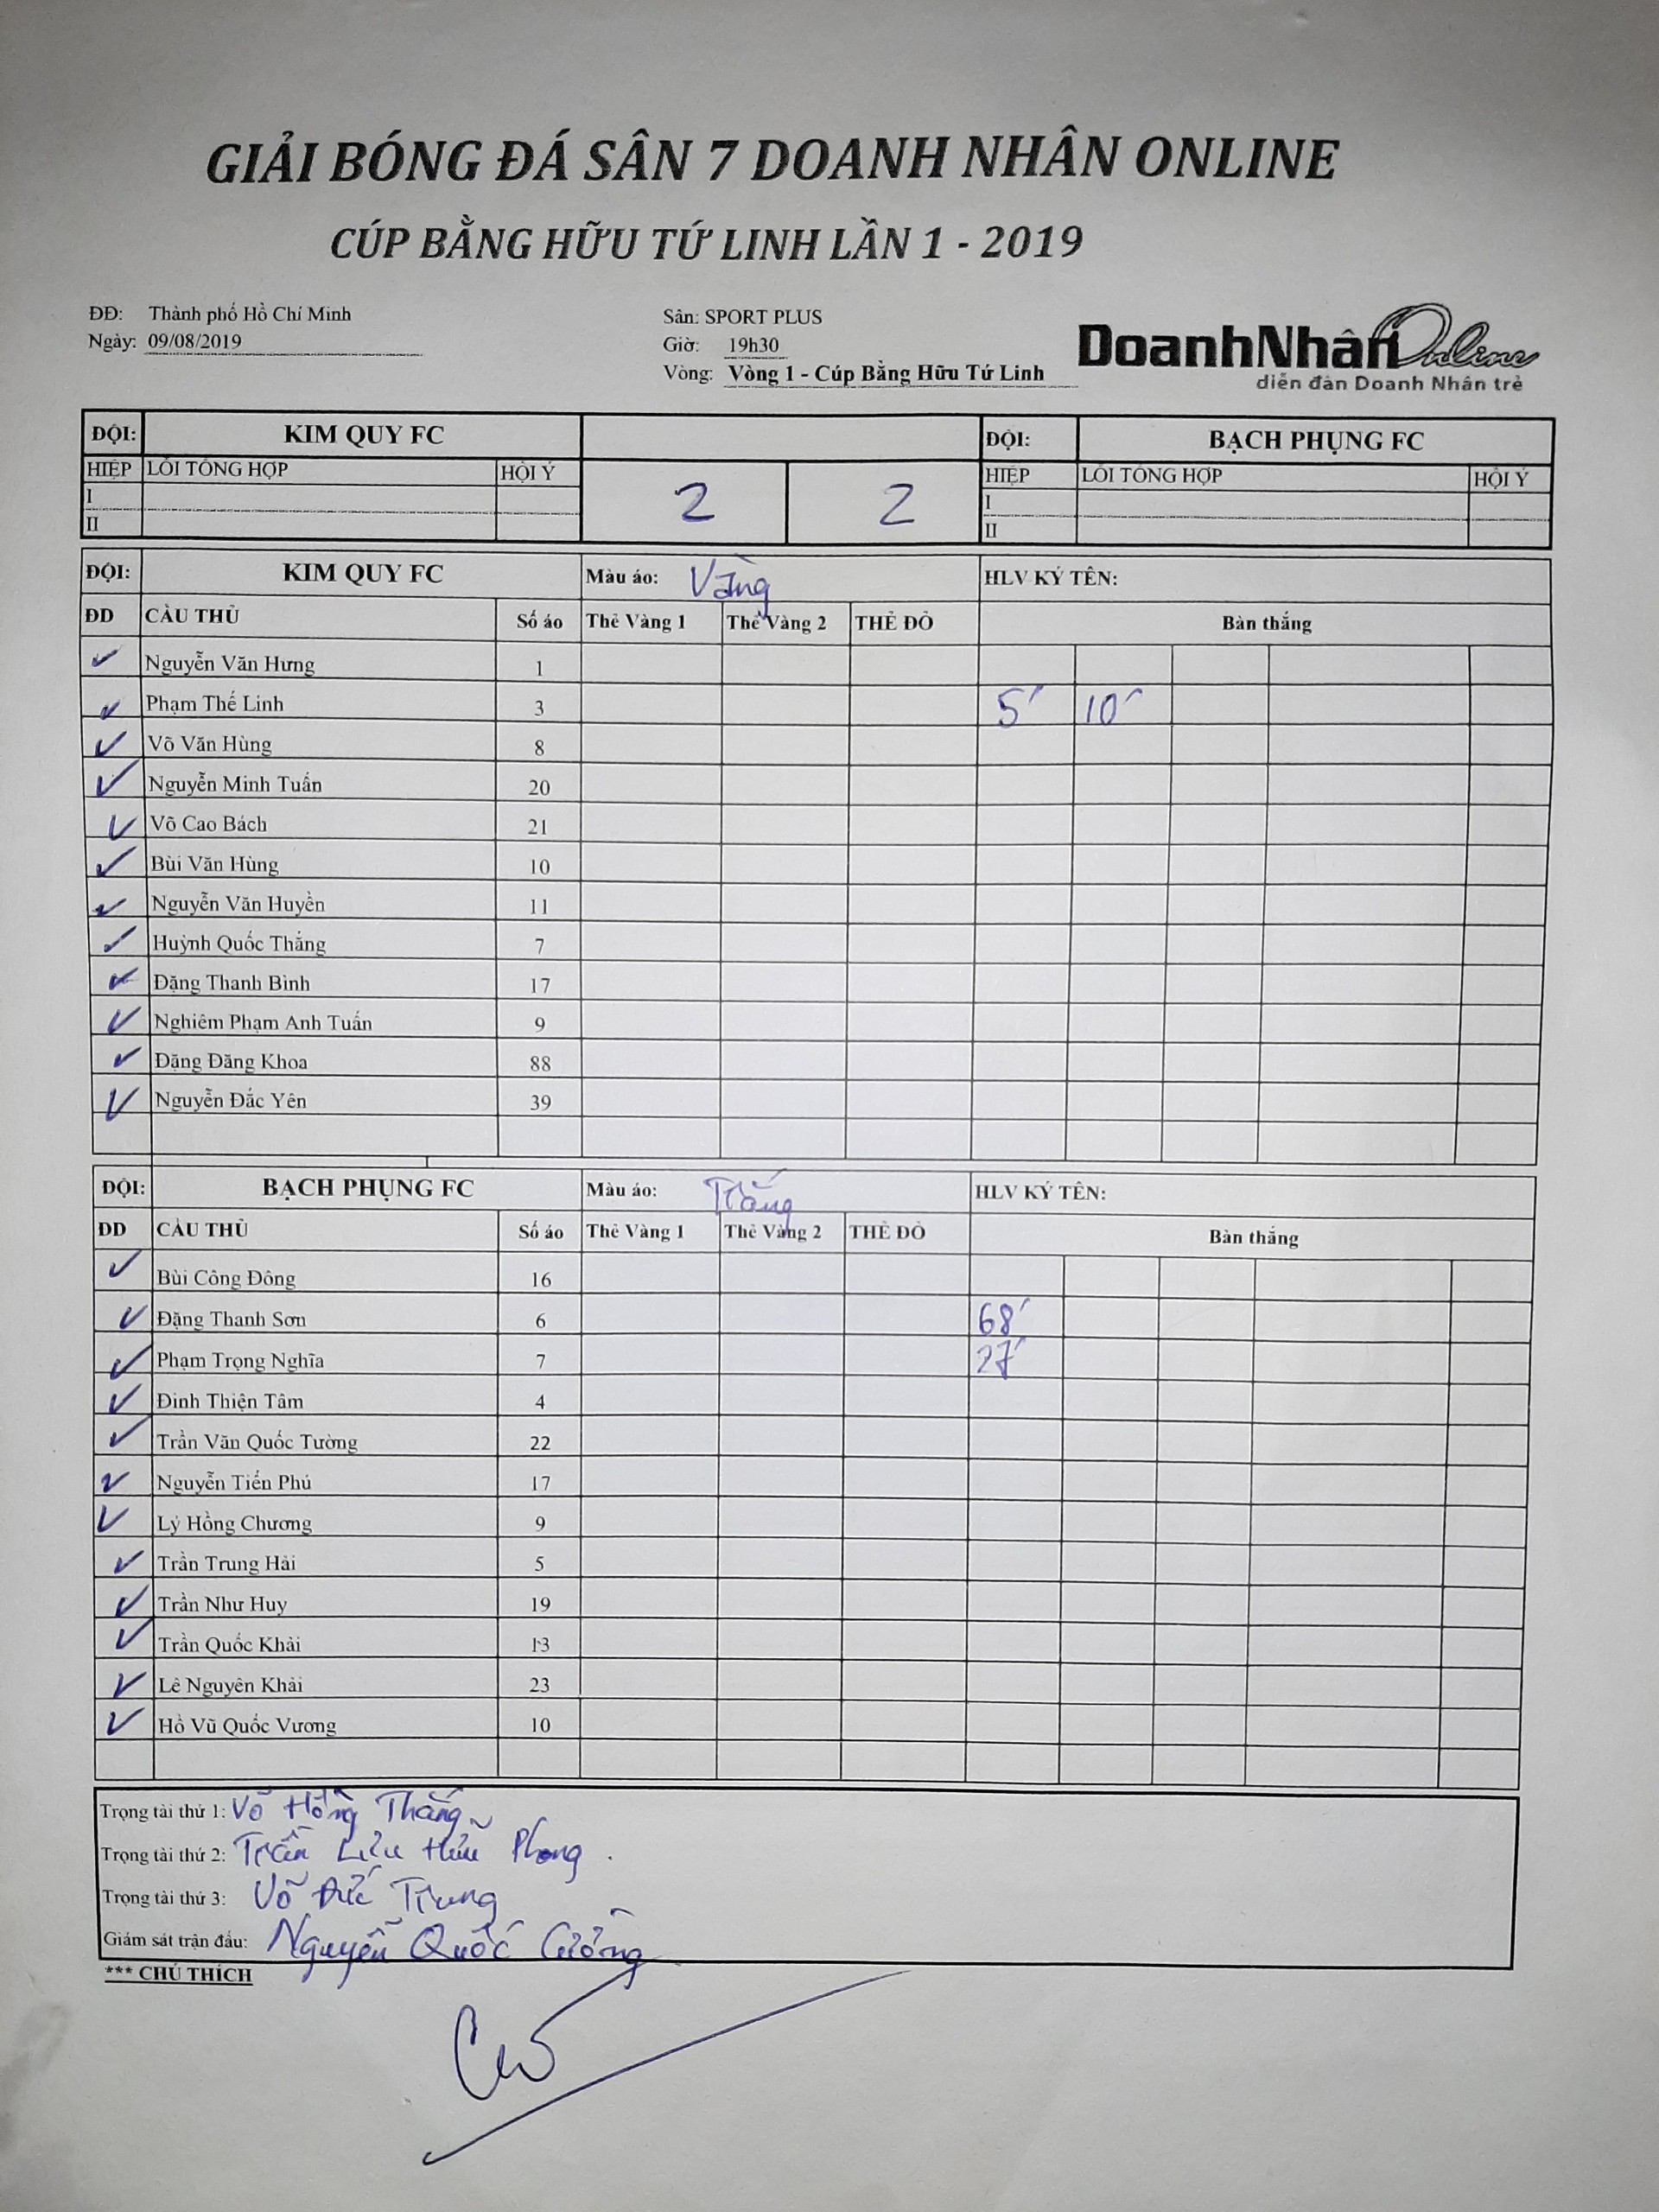 GIẢI BÓNG ĐÁ SÂN 7 DOANH NHÂN ONLINE
CÚP BẰNG HỮU TỨ LINH LẦN 1 - 2019
ĐĐ: Thành phố Hồ Chí Minh
Ngày: 09/08/2019
Sân: SPORT PLUS
Giờ: 19h30
Vòng: Vòng 1 - Cúp Bằng Hữu Tứ Linh
DoanhNhân Online
diễn đàn Doanh Nhân trẻ
ĐỘI: KIM QUY FC ĐỘI: BẠCH PHỤNG FC
HIỆP LỖI TỔNG HỢP HỘI Ý 2 2 HIỆP LỖI TỔNG HỢP HỘI Ý
I I
II II
ĐỘI: KIM QUY FC Màu áo: Vàng HLV KÝ TÊN:
ĐD CẦU THỦ Số áo Thẻ Vàng 1 Thẻ Vàng 2 THẺ ĐỎ Bàn thắng
✓ Nguyễn Văn Hưng 1
✓ Phạm Thế Linh 3 5' 10'
✓ Võ Văn Hùng 8
✓ Nguyễn Minh Tuấn 20
✓ Võ Cao Bách 21
✓ Bùi Văn Hùng 10
✓ Nguyễn Văn Huyền 11
✓ Huỳnh Quốc Thắng 7
✓ Đặng Thanh Bình 17
✓ Nghiêm Phạm Anh Tuấn 9
✓ Đặng Đăng Khoa 88
✓ Nguyễn Đắc Yên 39
ĐỘI: BẠCH PHỤNG FC Màu áo: Trắng HLV KÝ TÊN:
ĐD CẦU THỦ Số áo Thẻ Vàng 1 Thẻ Vàng 2 THẺ ĐỎ Bàn thắng
✓ Bùi Công Đông 16
✓ Đặng Thanh Sơn 6 68'
✓ Phạm Trọng Nghĩa 7 27'
✓ Đinh Thiện Tâm 4
✓ Trần Văn Quốc Tường 22
✓ Nguyễn Tiến Phú 17
✓ Lý Hồng Chương 9
✓ Trần Trung Hải 5
✓ Trần Như Huy 19
✓ Trần Quốc Khải 13
✓ Lê Nguyên Khải 23
✓ Hồ Vũ Quốc Vương 10
Trọng tài thứ 1: Võ Hồng Thắng
Trọng tài thứ 2: Trần Lưu Hữu Phong.
Trọng tài thứ 3: Võ Đức Trung
Giám sát trận đấu: Nguyễn Quốc Cường
*** CHÚ THÍCH